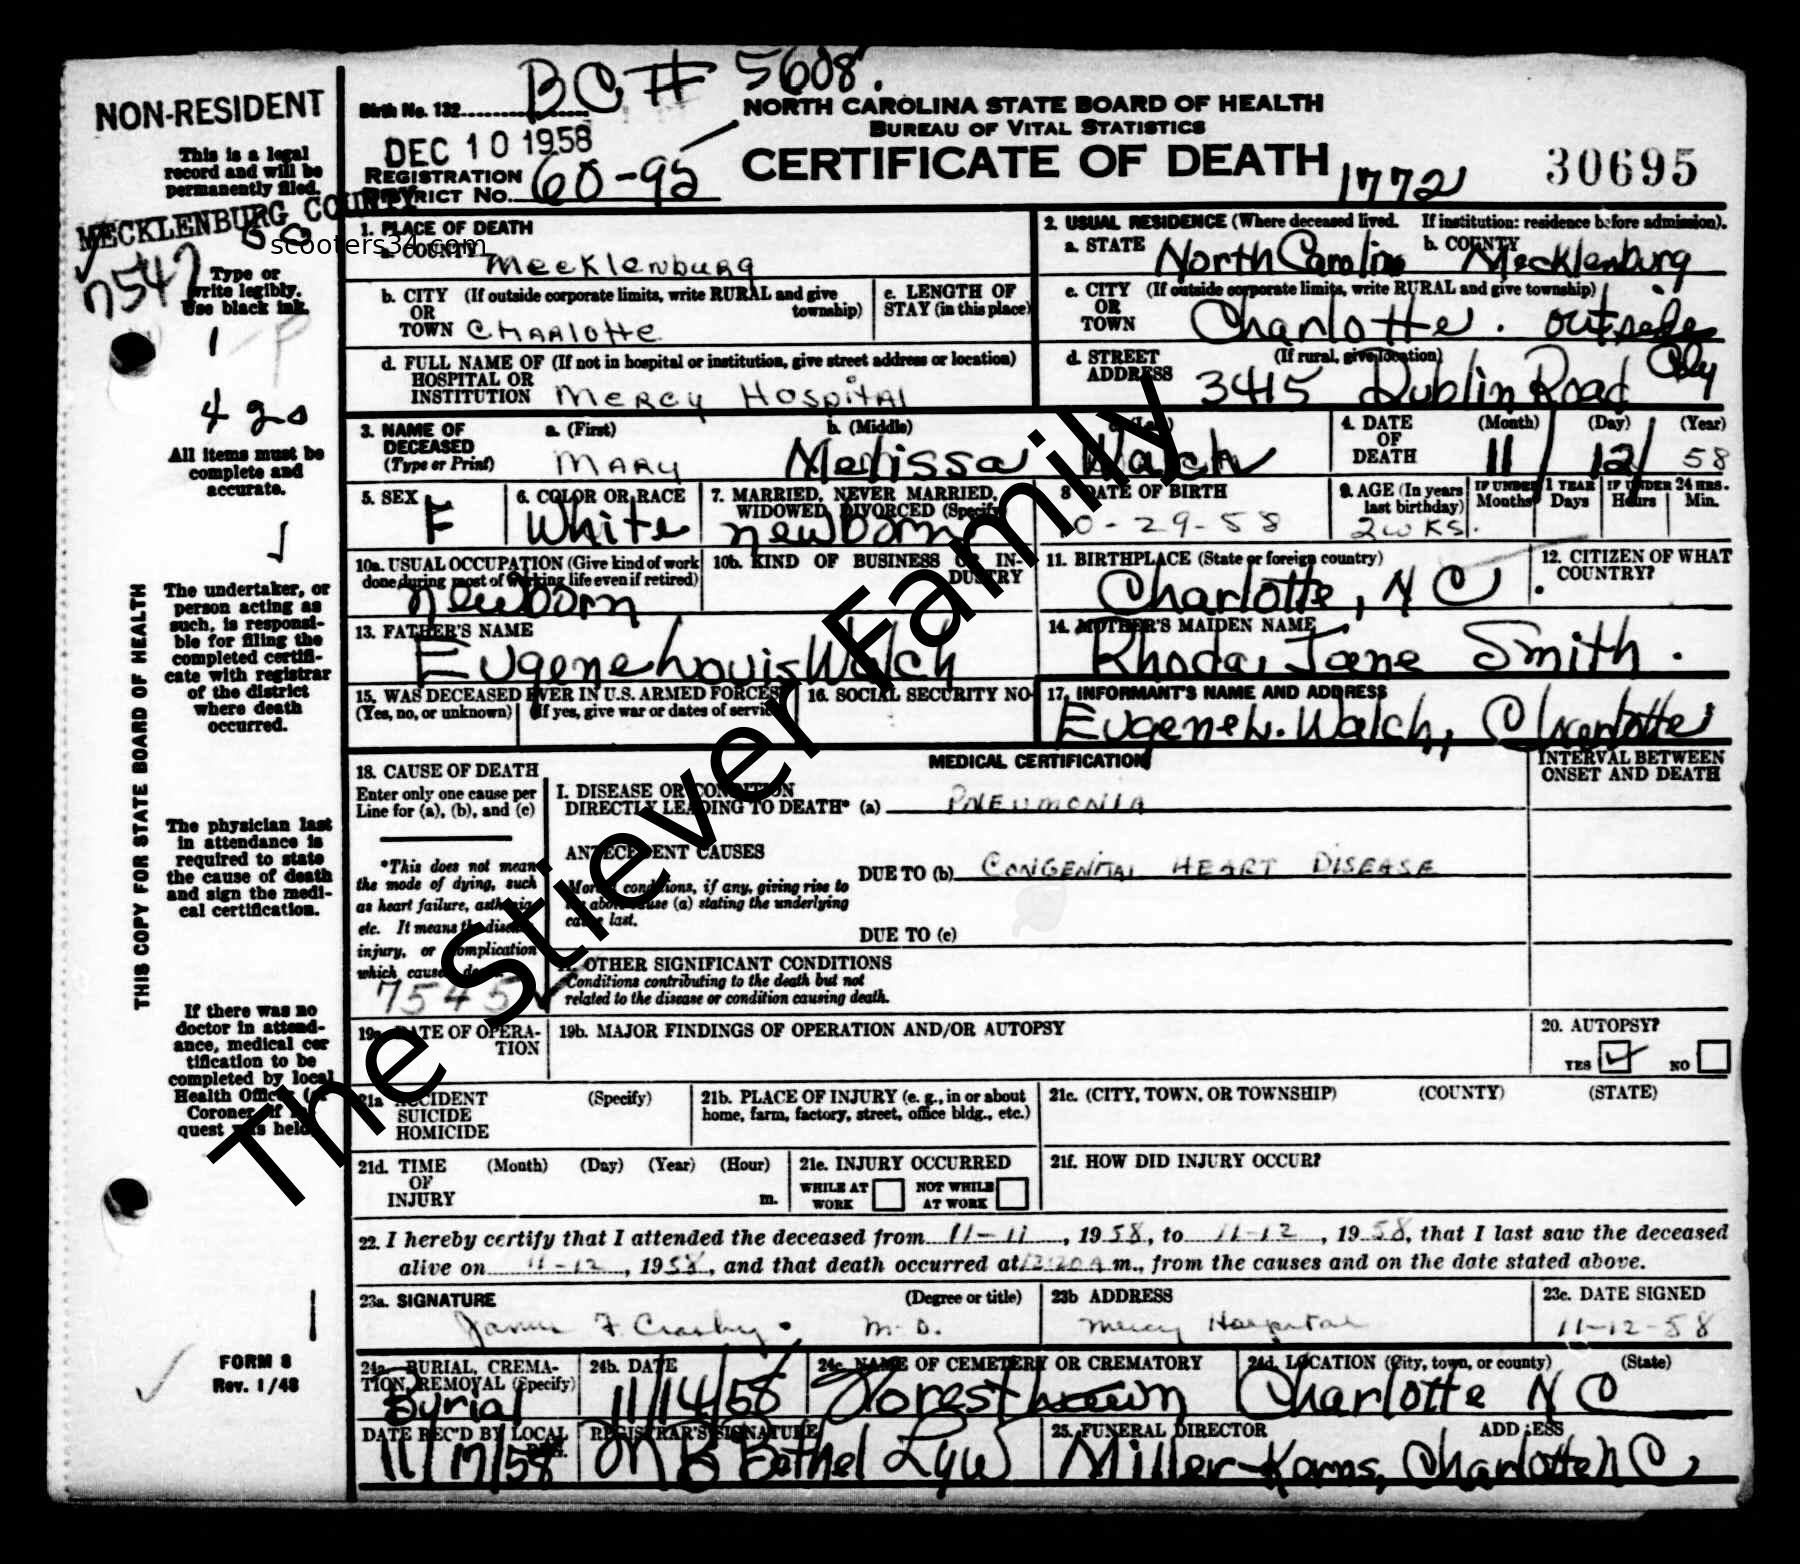 BC# 5608.
NON-RESIDENT
Birth No. 132
NORTH CAROLINA STATE BOARD OF HEALTH
BUREAU OF VITAL STATISTICS
CERTIFICATE OF DEATH
DEC 10 1958
REGISTRATION DISTRICT No. 60-95
1772
30695
This is a legal
record and will be
permanently filed.
MECKLENBURG COUNTY
scooters34.com
7547
Type or
write legibly.
Use black ink.
1
4 20
All items must be
complete and
accurate.
The undertaker, or
person acting as
such, is responsi-
ble for filing the
completed certifi-
cate with registrar
of the district
where death
occurred.
The physician last
in attendance is
required to state
the cause of death
and sign the medi-
cal certification.
If there was no
doctor in attend-
ance, medical cer
tification to be
completed by local
Health Officer (or
Coroner if in-
quest was held.
THIS COPY FOR STATE BOARD OF HEALTH
FORM 8
Rev. 1/48
1. PLACE OF DEATH
a. COUNTY Mecklenburg
2. USUAL RESIDENCE (Where deceased lived. If institution: residence before admission).
a. STATE North Carolina b. COUNTY Mecklenburg
b. CITY (If outside corporate limits, write RURAL and give township)
OR
TOWN Charlotte
c. LENGTH OF
STAY (in this place)
c. CITY (If outside corporate limits, write RURAL and give township)
OR
TOWN Charlotte. outside City
d. FULL NAME OF (If not in hospital or institution, give street address or location)
HOSPITAL OR
INSTITUTION Mercy Hospital
d. STREET (If rural, give location)
ADDRESS 3415 Dublin Road
3. NAME OF
DECEASED
(Type or Print)
a. (First) b. (Middle) c. (Last)
Mary Melissa Walch
4. DATE
OF
DEATH
(Month) (Day) (Year)
11/12/58
5. SEX F
6. COLOR OR RACE
White
7. MARRIED, NEVER MARRIED,
WIDOWED, DIVORCED (Specify)
newborn
8 DATE OF BIRTH
10-29-58
9. AGE (In years
last birthday)
2 wks.
IF UNDER 1 YEAR
Months Days
IF UNDER 24 HRS.
Hours Min.
10a. USUAL OCCUPATION (Give kind of work
done during most of working life even if retired)
newborn
10b. KIND OF BUSINESS OR IN-
DUSTRY
11. BIRTHPLACE (State or foreign country)
Charlotte, N C
12. CITIZEN OF WHAT
COUNTRY?
13. FATHER'S NAME
Eugene Louis Walch
14. MOTHER'S MAIDEN NAME
Rhoda Jane Smith.
15. WAS DECEASED EVER IN U.S. ARMED FORCES?
(Yes, no, or unknown) (If yes, give war or dates of service)
16. SOCIAL SECURITY NO.
17. INFORMANT'S NAME AND ADDRESS
Eugene L. Walch, Charlotte
MEDICAL CERTIFICATION
INTERVAL BETWEEN
ONSET AND DEATH
18. CAUSE OF DEATH
Enter only one cause per
Line for (a), (b), and (c)
*This does not mean
the mode of dying, such
as heart failure, asthenia,
etc. It means the disease,
injury, or complication
which caused death.
7545
I. DISEASE OR CONDITION
DIRECTLY LEADING TO DEATH* (a) Pneumonia
ANTECEDENT CAUSES
Morbid conditions, if any, giving rise to
the above cause (a) stating the underlying
cause last.
DUE TO (b) Congenital Heart Disease
DUE TO (c)
II. OTHER SIGNIFICANT CONDITIONS
Conditions contributing to the death but not
related to the disease or condition causing death.
19a. DATE OF OPERA-
TION
19b. MAJOR FINDINGS OF OPERATION AND/OR AUTOPSY
20. AUTOPSY?
YES ✓ NO
21a ACCIDENT (Specify)
SUICIDE
HOMICIDE
21b. PLACE OF INJURY (e. g., in or about
home, farm, factory, street, office bldg., etc.)
21c. (CITY, TOWN, OR TOWNSHIP) (COUNTY) (STATE)
21d. TIME (Month) (Day) (Year) (Hour)
OF
INJURY m.
21e. INJURY OCCURRED
WHILE AT WORK NOT WHILE AT WORK
21f. HOW DID INJURY OCCUR?
22. I hereby certify that I attended the deceased from 11-11, 1958, to 11-12, 1958, that I last saw the deceased
alive on 11-12, 1958, and that death occurred at 12:20 A m., from the causes and on the date stated above.
23a. SIGNATURE (Degree or title)
James F. Crosby. M.D.
23b ADDRESS
Mercy Hospital
23c. DATE SIGNED
11-12-58
24a. BURIAL, CREMA-
TION, REMOVAL (Specify)
Burial
24b. DATE
11/14/58
24c. NAME OF CEMETERY OR CREMATORY
Forest Lawn
24d. LOCATION (City, town, or county) (State)
Charlotte N C
DATE REC'D BY LOCAL
REG.
11/17/58
REGISTRAR'S SIGNATURE
M B Bethel
25. FUNERAL DIRECTOR ADDRESS
Miller-Karns, Charlotte N C
The Stiever Family